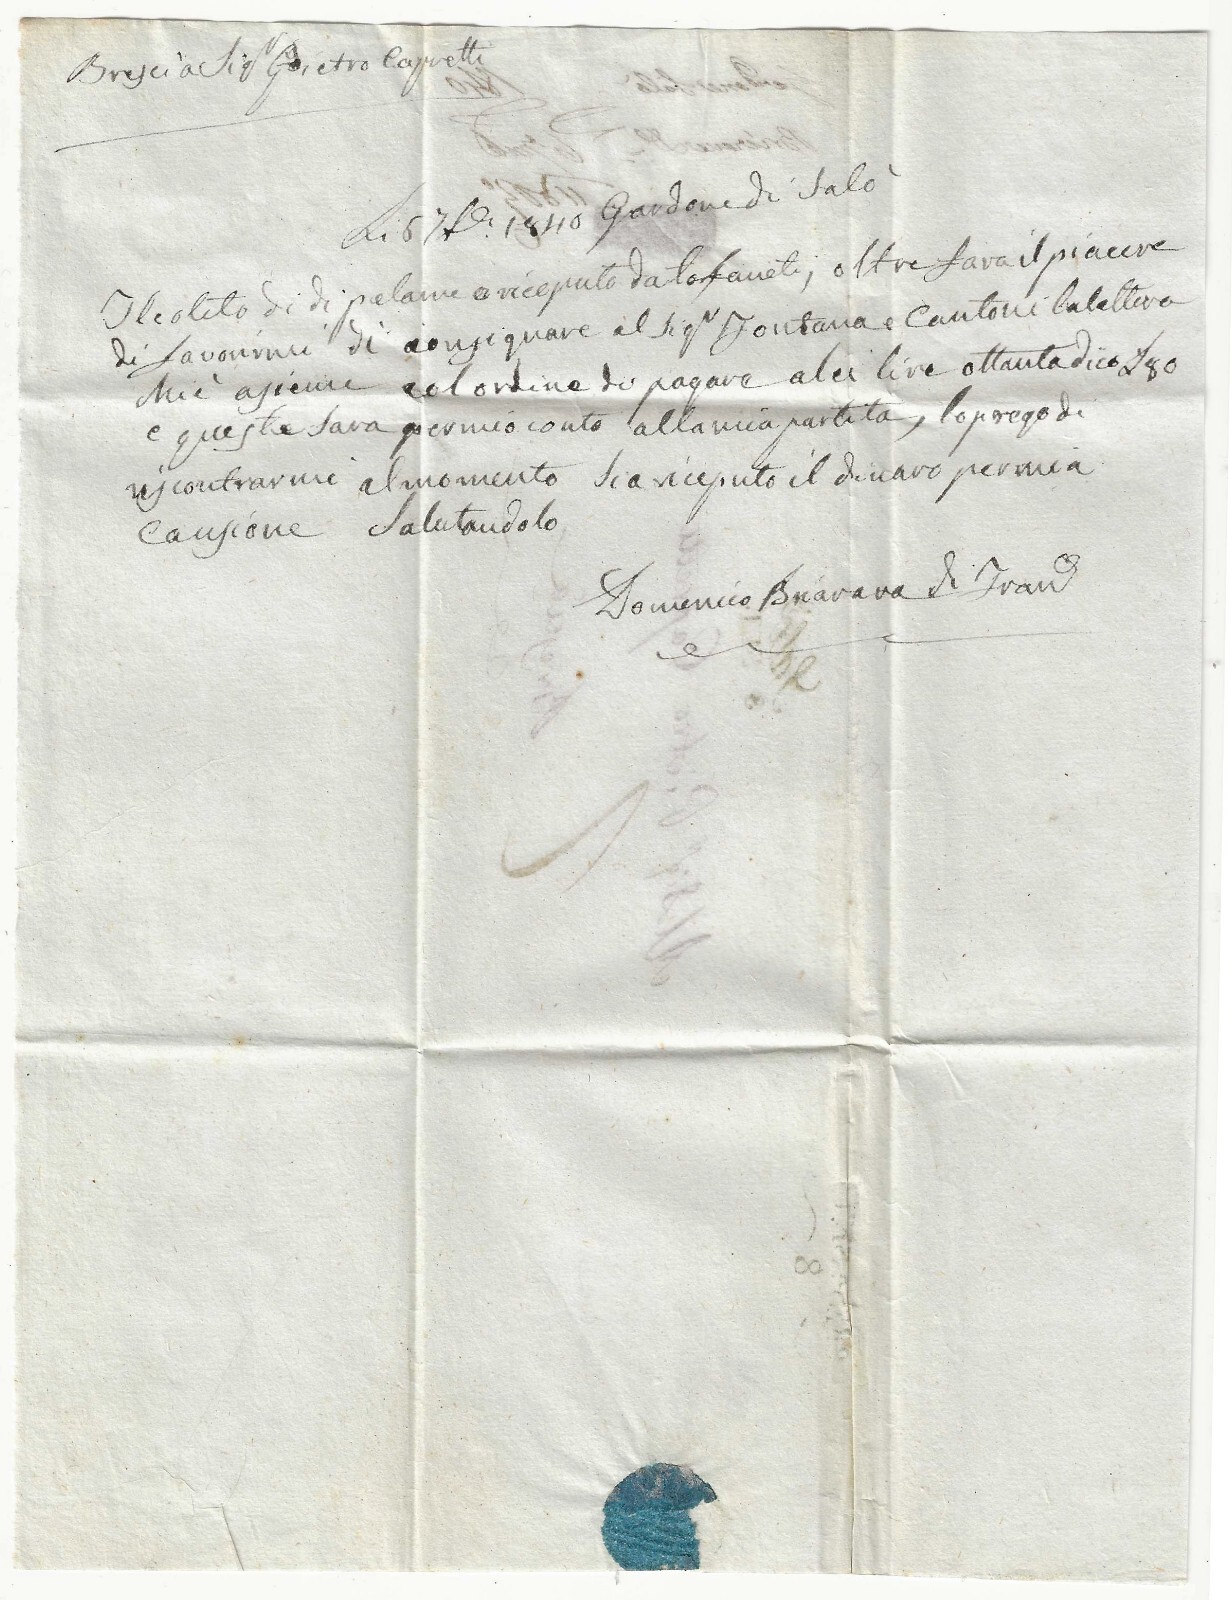 Brescia Sigr Pietro Capretti
Li 6 7bre 1840 Gardone di Salò
Il colito di di pelame o riceputo da, oltre fara il piacere
di favorirmi di consignare al Sigr Fontana e Cantoni la lettera
asieme col ordine di pagare a lei lire ottanta dico L 80
e queste sara per mio conto alla mia partita, lo prego di
riscontrarmi al momento sia riceputo il dinaro per mia
causione Salutandolo
Domenico di Franco
8